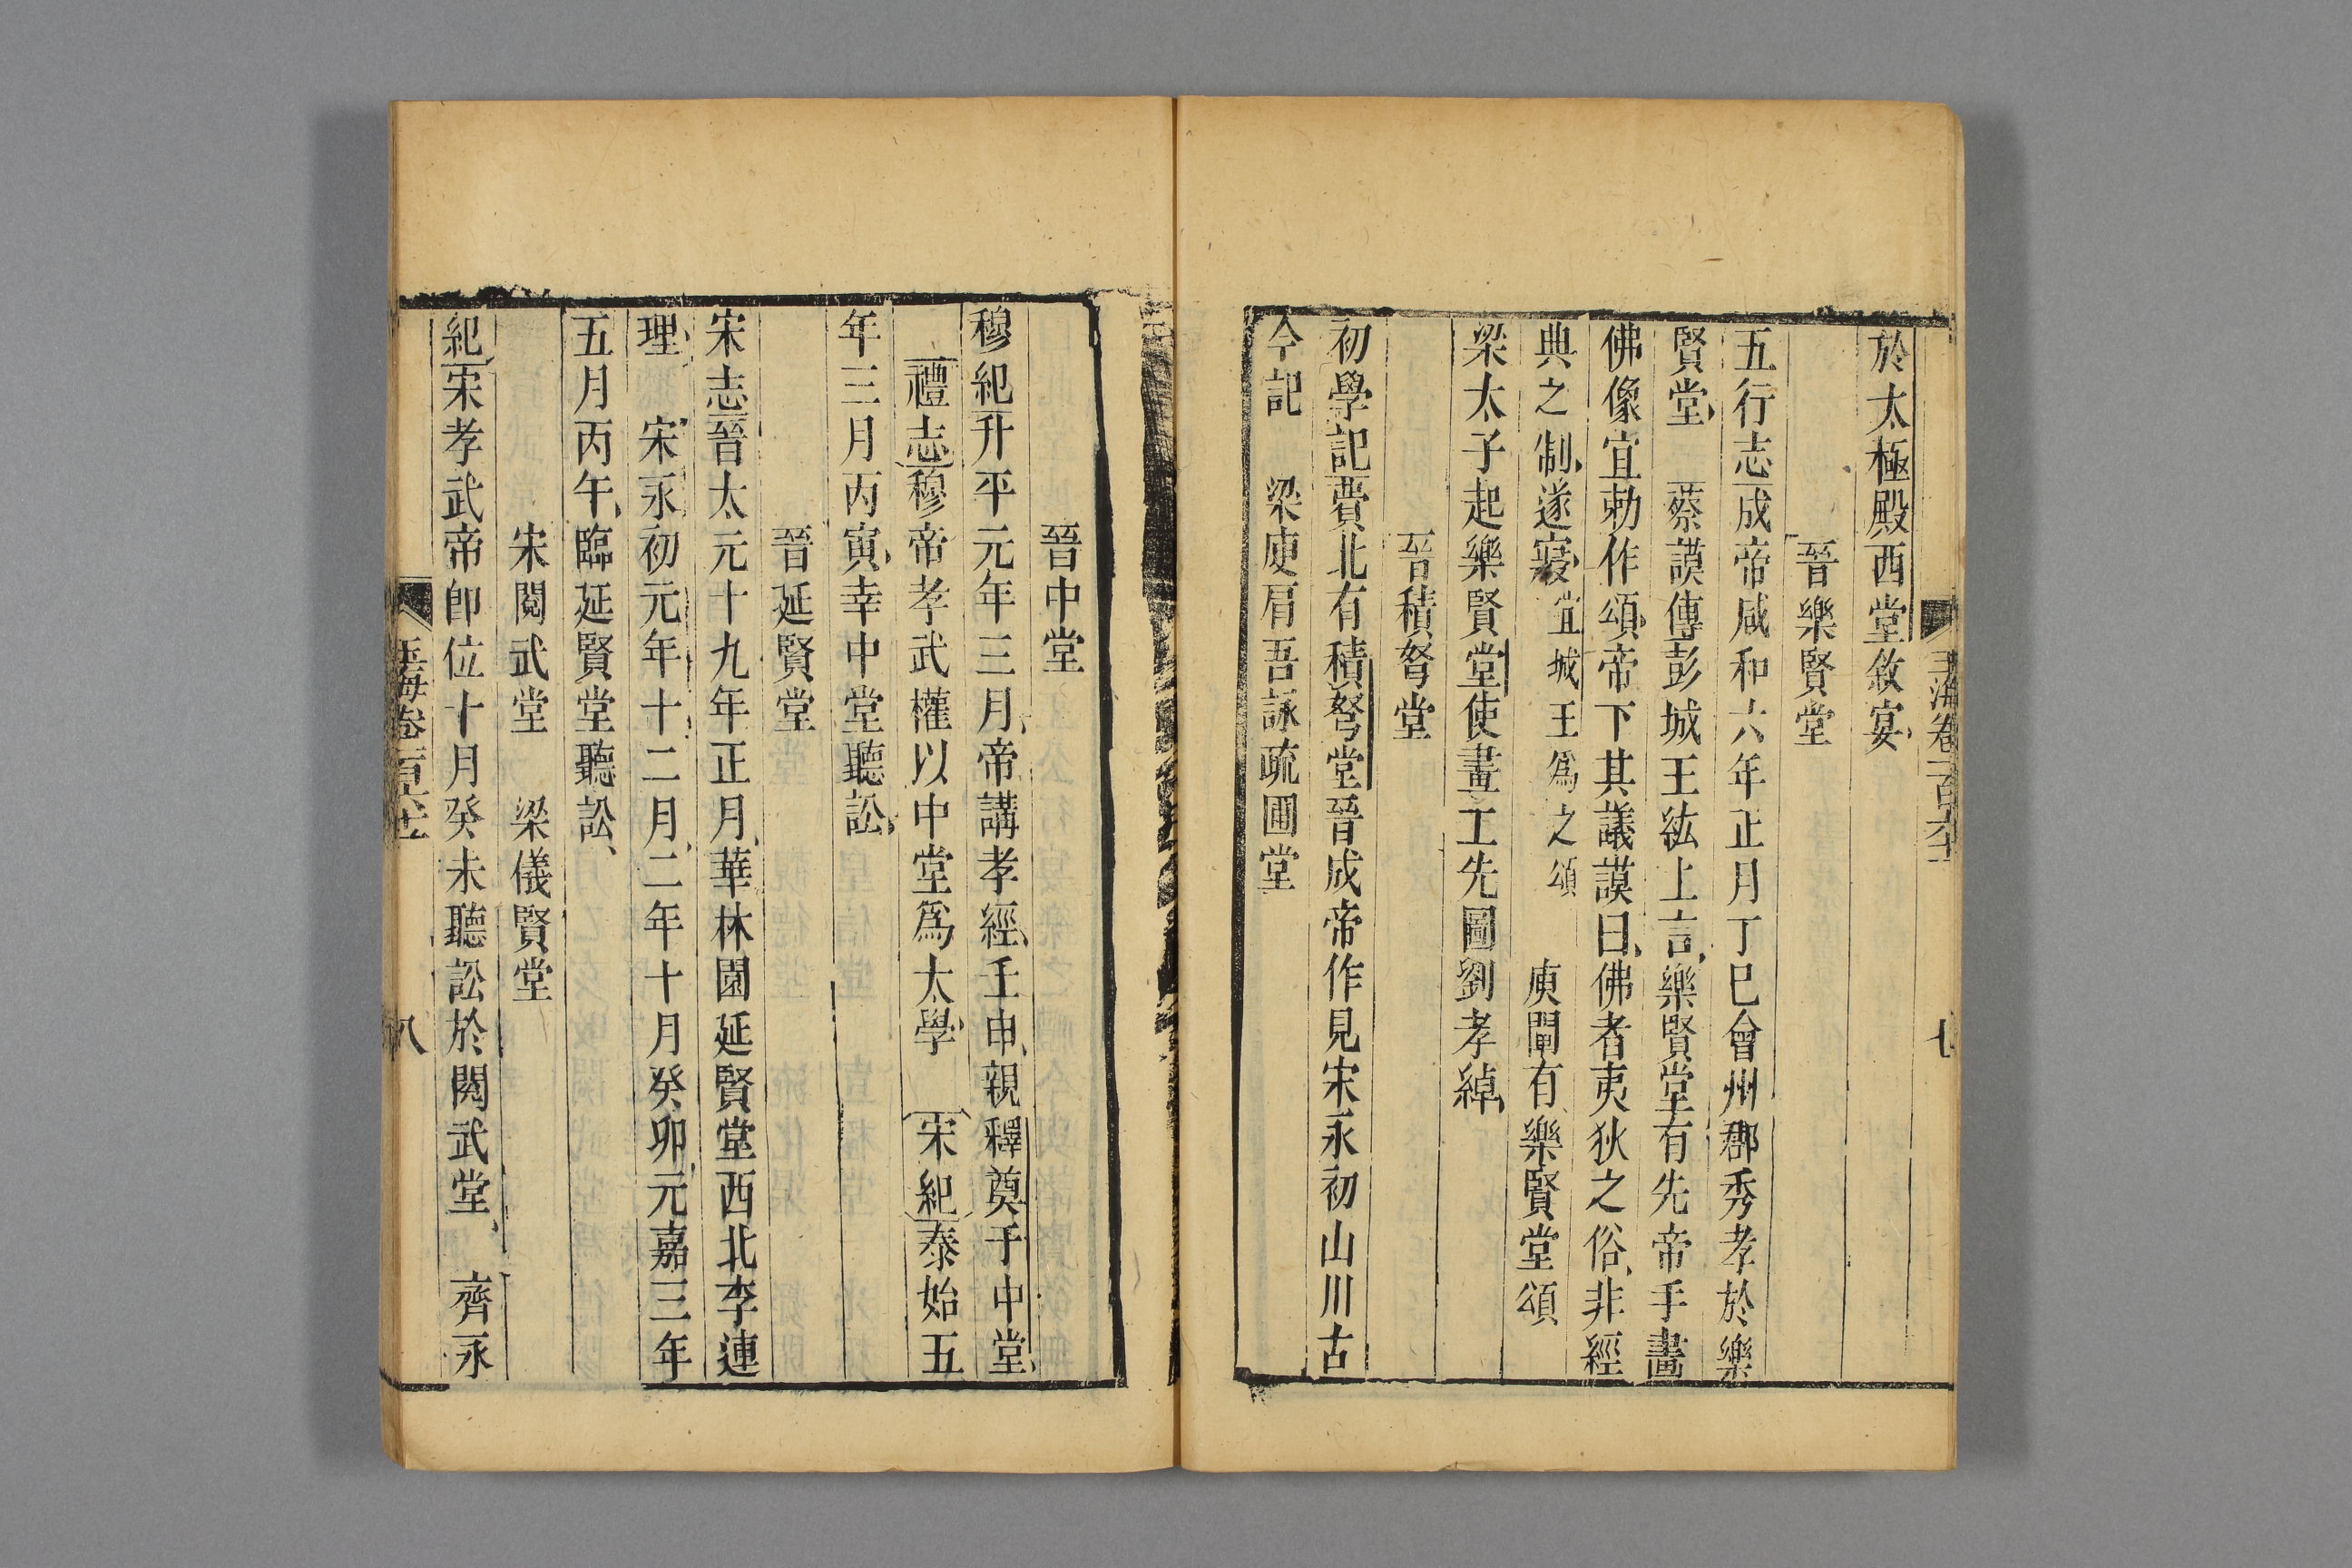 玉海卷一百六十一 七
於太極殿西堂敘宴
晉樂賢堂
五行志成帝咸和六年正月丁巳會州郡秀孝於樂
賢堂 蔡謨傳彭城王紘上言樂賢堂有先帝手畫
佛像宜勅作頌帝下其議謨曰佛者夷狄之俗非經
典之制遂寢宜城王爲之頌 庾闡有樂賢堂頌
梁太子起樂賢堂使畫工先圖劉孝綽
晉積弩堂
初學記費北有積弩堂晉成帝作見宋永初山川古
今記 梁庾肩吾詠疏圃堂
晉中堂
穆紀升平元年三月帝講孝經壬申親釋奠于中堂
禮志穆帝孝武權以中堂爲太學 宋紀泰始五
年三月丙寅幸中堂聽訟
晉延賢堂
宋志晉太元十九年正月華林園延賢堂西北李連
理 宋永初元年十二月二年十月癸卯元嘉三年
五月丙午臨延賢堂聽訟
宋閱武堂 梁儀賢堂
紀宋孝武帝卽位十月癸未聽訟於閱武堂 齊永
玉海卷一百六十一 八